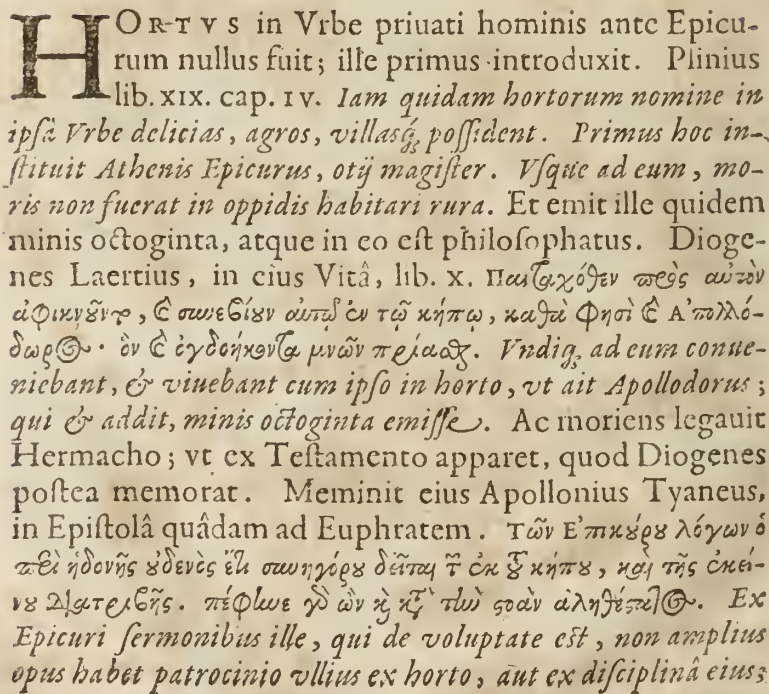 HORTVS in Vrbe priuati hominis ante Epicu-
rum nullus fuit; ille primus introduxit. Plinius
lib. XIX. cap. IV. Iam quidam hortorum nomine in
ipsâ Vrbe delicias, agros, villasq́; possident. Primus hoc in-
stituit Athenis Epicurus, otij magister. Vsque ad eum, mo-
ris non fuerat in oppidis habitari rura. Et emit ille quidem
minis octoginta, atque in eo est philosophatus. Dioge-
nes Laertius, in eius Vitâ, lib. x. Πανταχόθεν πρὸς αὐτὸν
ἀφικνοῦντο, καὶ συνεβίουν αὐτῷ ἐν τῷ κήπῳ, καθὰ φησὶ καὶ Ἀπολλό-
δωρος· ὃν καὶ ὀγδοήκοντα μνῶν πρίασθαι. Vndiq; ad eum conue-
niebant, & viuebant cum ipso in horto, vt ait Apollodorus;
qui & addit, minis octoginta emisse. Ac moriens legauit
Hermacho; vt ex Testamento apparet, quod Diogenes
postea memorat. Meminit eius Apollonius Tyaneus,
in Epistolâ quâdam ad Euphratem. Τῶν Ἐπικούρου λόγων ὁ
περὶ ἡδονῆς οὐδενὸς ἔτι συνηγόρου δεῖται τῶν ἐκ τοῦ κήπου, καὶ τῆς ἐκεί-
νου διατριβῆς. πέφηνε γὰρ ὢν καὶ κατὰ τὴν στοὰν ἀληθέστατος. Ex
Epicuri sermonibus ille, qui de voluptate est, non amplius
opus habet patrocinio vllius ex horto, aut ex disciplinâ eius;